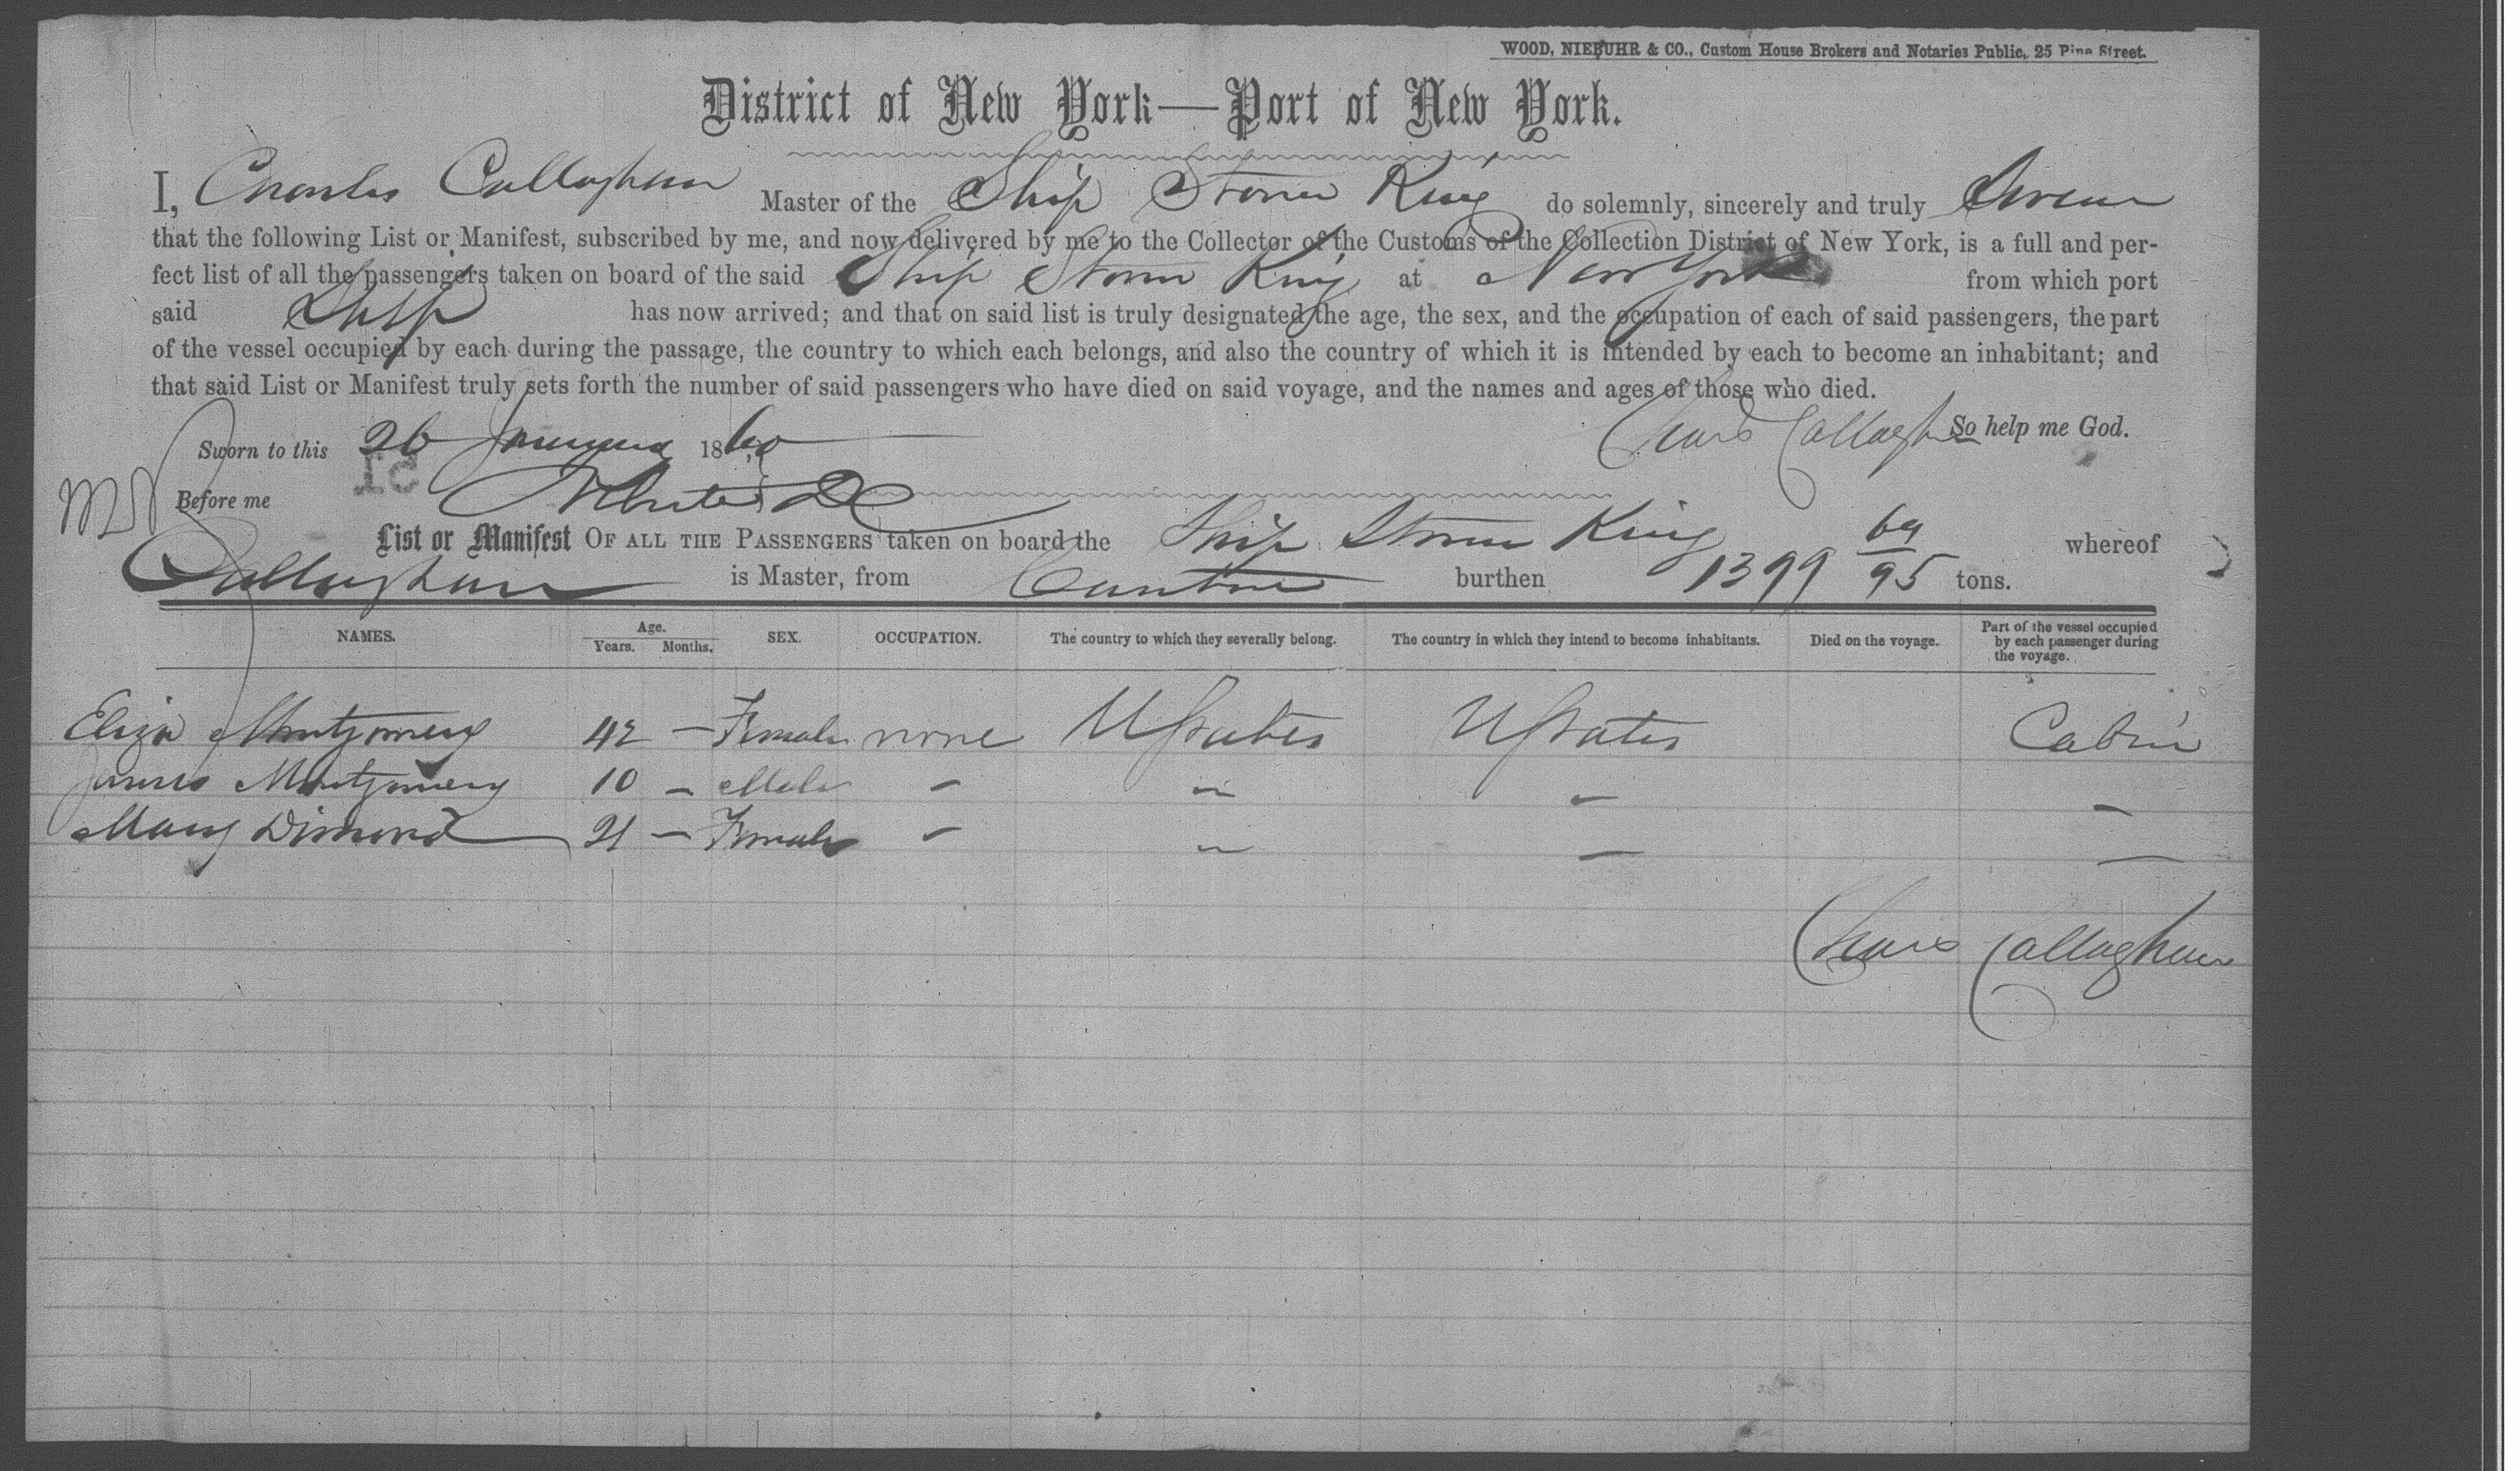 WOOD, NIEBUHR & CO., Custom House Brokers and Notaries Public, 25 Pine Street.
District of New York—Port of New York.
I, Charles Callaghan Master of the Ship Storm King do solemnly, sincerely and truly Swear
that the following List or Manifest, subscribed by me, and now delivered by me to the Collector of the Customs of the Collection District of New York, is a full and per-
fect list of all the passengers taken on board of the said Ship Storm King at New York from which port
said Ship has now arrived; and that on said list is truly designated the age, the sex, and the occupation of each of said passengers, the part
of the vessel occupied by each during the passage, the country to which each belongs, and also the country of which it is intended by each to become an inhabitant; and
that said List or Manifest truly sets forth the number of said passengers who have died on said voyage, and the names and ages of those who died.
So help me God.
Sworn to this 26 January 1860 Chas Callaghan
Before me
List or Manifest OF ALL THE PASSENGERS taken on board the Ship Storm King whereof
Callaghan is Master, from Canton burthen 1399 69/95 tons.
NAMES. Age. Years. Months. SEX. OCCUPATION. The country to which they severally belong. The country in which they intend to become inhabitants. Died on the voyage. Part of the vessel occupied by each passenger during the voyage.
Eliza Montgomery 42 — Female none U States U States Cabin
James Montgomery 10 — Male " " " "
Mary Dimond 21 — Female " " " "
Chas Callaghan